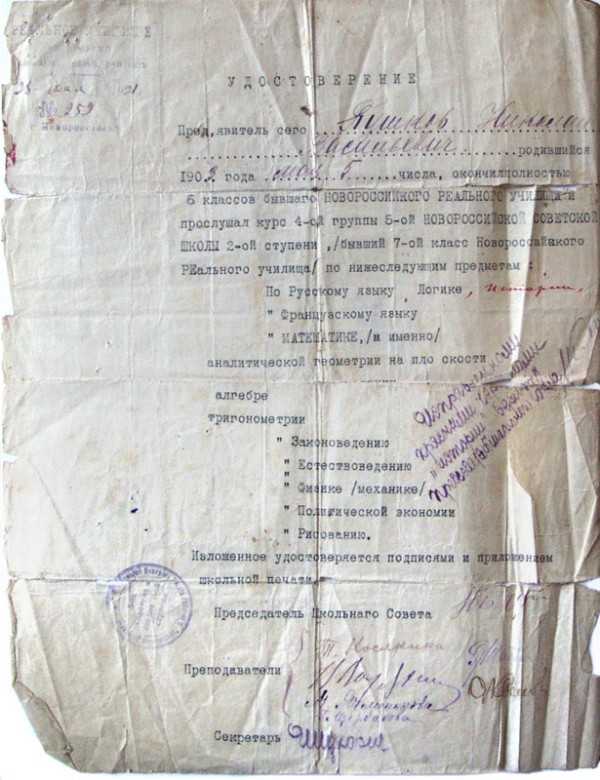 РЕАЛЬНОЕ
№ 259
г. Новороссийск
УДОСТОВЕРЕНИЕ
Пред,явитель сего Николай
Васильевич родившийся
1903 года мая 5 числа, окончилполностью
6 классов бывшаго НОВОРОССИЙКОГО РЕАЛЬНОГО УЧИЛИЩА и
прослушал курс 4-ой группы 5-ой НОВОРОССИЙСКОЙ СОВЕТСКОЙ
ШКОЛЫ 2-ой ступени ,/бывший 7-ой класс Новороссайнкого
РЕального училища/ по нижеследующим предметам :
По Русскому языку , Логике, истории,
" Французскому языку
" МАТЕМАТИКЕ,/и именно/
аналитической геометрии на пло скости
алгебре
тригонометрии
" Законоведению
" Естествоведению
" Физике /механике/
" Политической экономии
" Рисованию.
Исправленному
красными чернилами
"истории" верить
Изложенное удостоверяется подписями и приложением
школьной печати.
Председатель Школьнаго Совета
Т. Косякина
Преподаватели
Щербакова
Секретарь